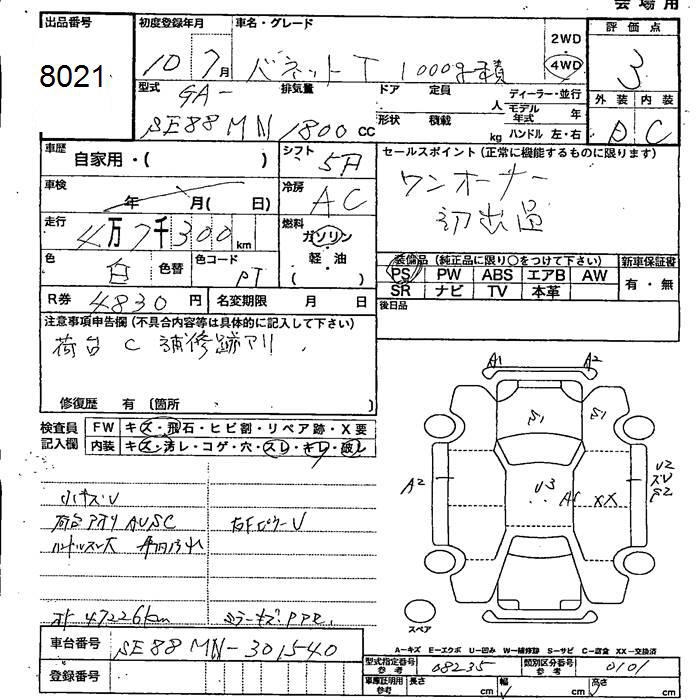 会場用
出品番号 初度登録年月 車名・グレード 評価点
8021 10 7月 バネットT 1000kg積 2WD 4WD 3
型式 GA- 排気量 ドア 定員 ディーラー・並行 外装 内装
SE88MN 1800cc 形状 積載 人 kg モデル年式 年 ハンドル 左・右 D C
車歴 自家用・( ) シフト 5F
セールスポイント (正常に機能するものに限ります)
ワンオーナー
初出品
車検 年 月( 日) 冷房 AC
走行 4万7千300km 燃料 ガソリン 軽・油 ( )
色 白 色替 色コード PT
装備品 (純正品に限り○をつけて下さい) 新車保証書
PS PW ABS エアB AW 有・無
SR ナビ TV 本革
R券 4830円 名変期限 月 日
後日品
注意事項申告欄 (不具合内容等は具体的に記入して下さい)
荷台 C 補修跡アリ
修復歴 有 (箇所 )
検査員 FW キズ・飛石・ヒビ割・リペア跡・X要
記入欄 内装 キズ・汚レ・コゲ・穴・スレ・キレ・破レ
A1 A2
S1 S1
A2 U3 A1 XX U2
ズU
S2
小キズ・U
荷台アオリ AUSC 右Fピラー U
ハンドルスレ大
オド 47226km
スペア
A-キズ E-エクボ U-凹み W-補修跡 S-サビ C-腐食 XX-交換済
車台番号 SE88MN-301540
型式指定番号 参考 08235 類別区分番号 参考 0101
登録番号
車庫証明用 参考 長さ cm 幅 cm 高さ cm